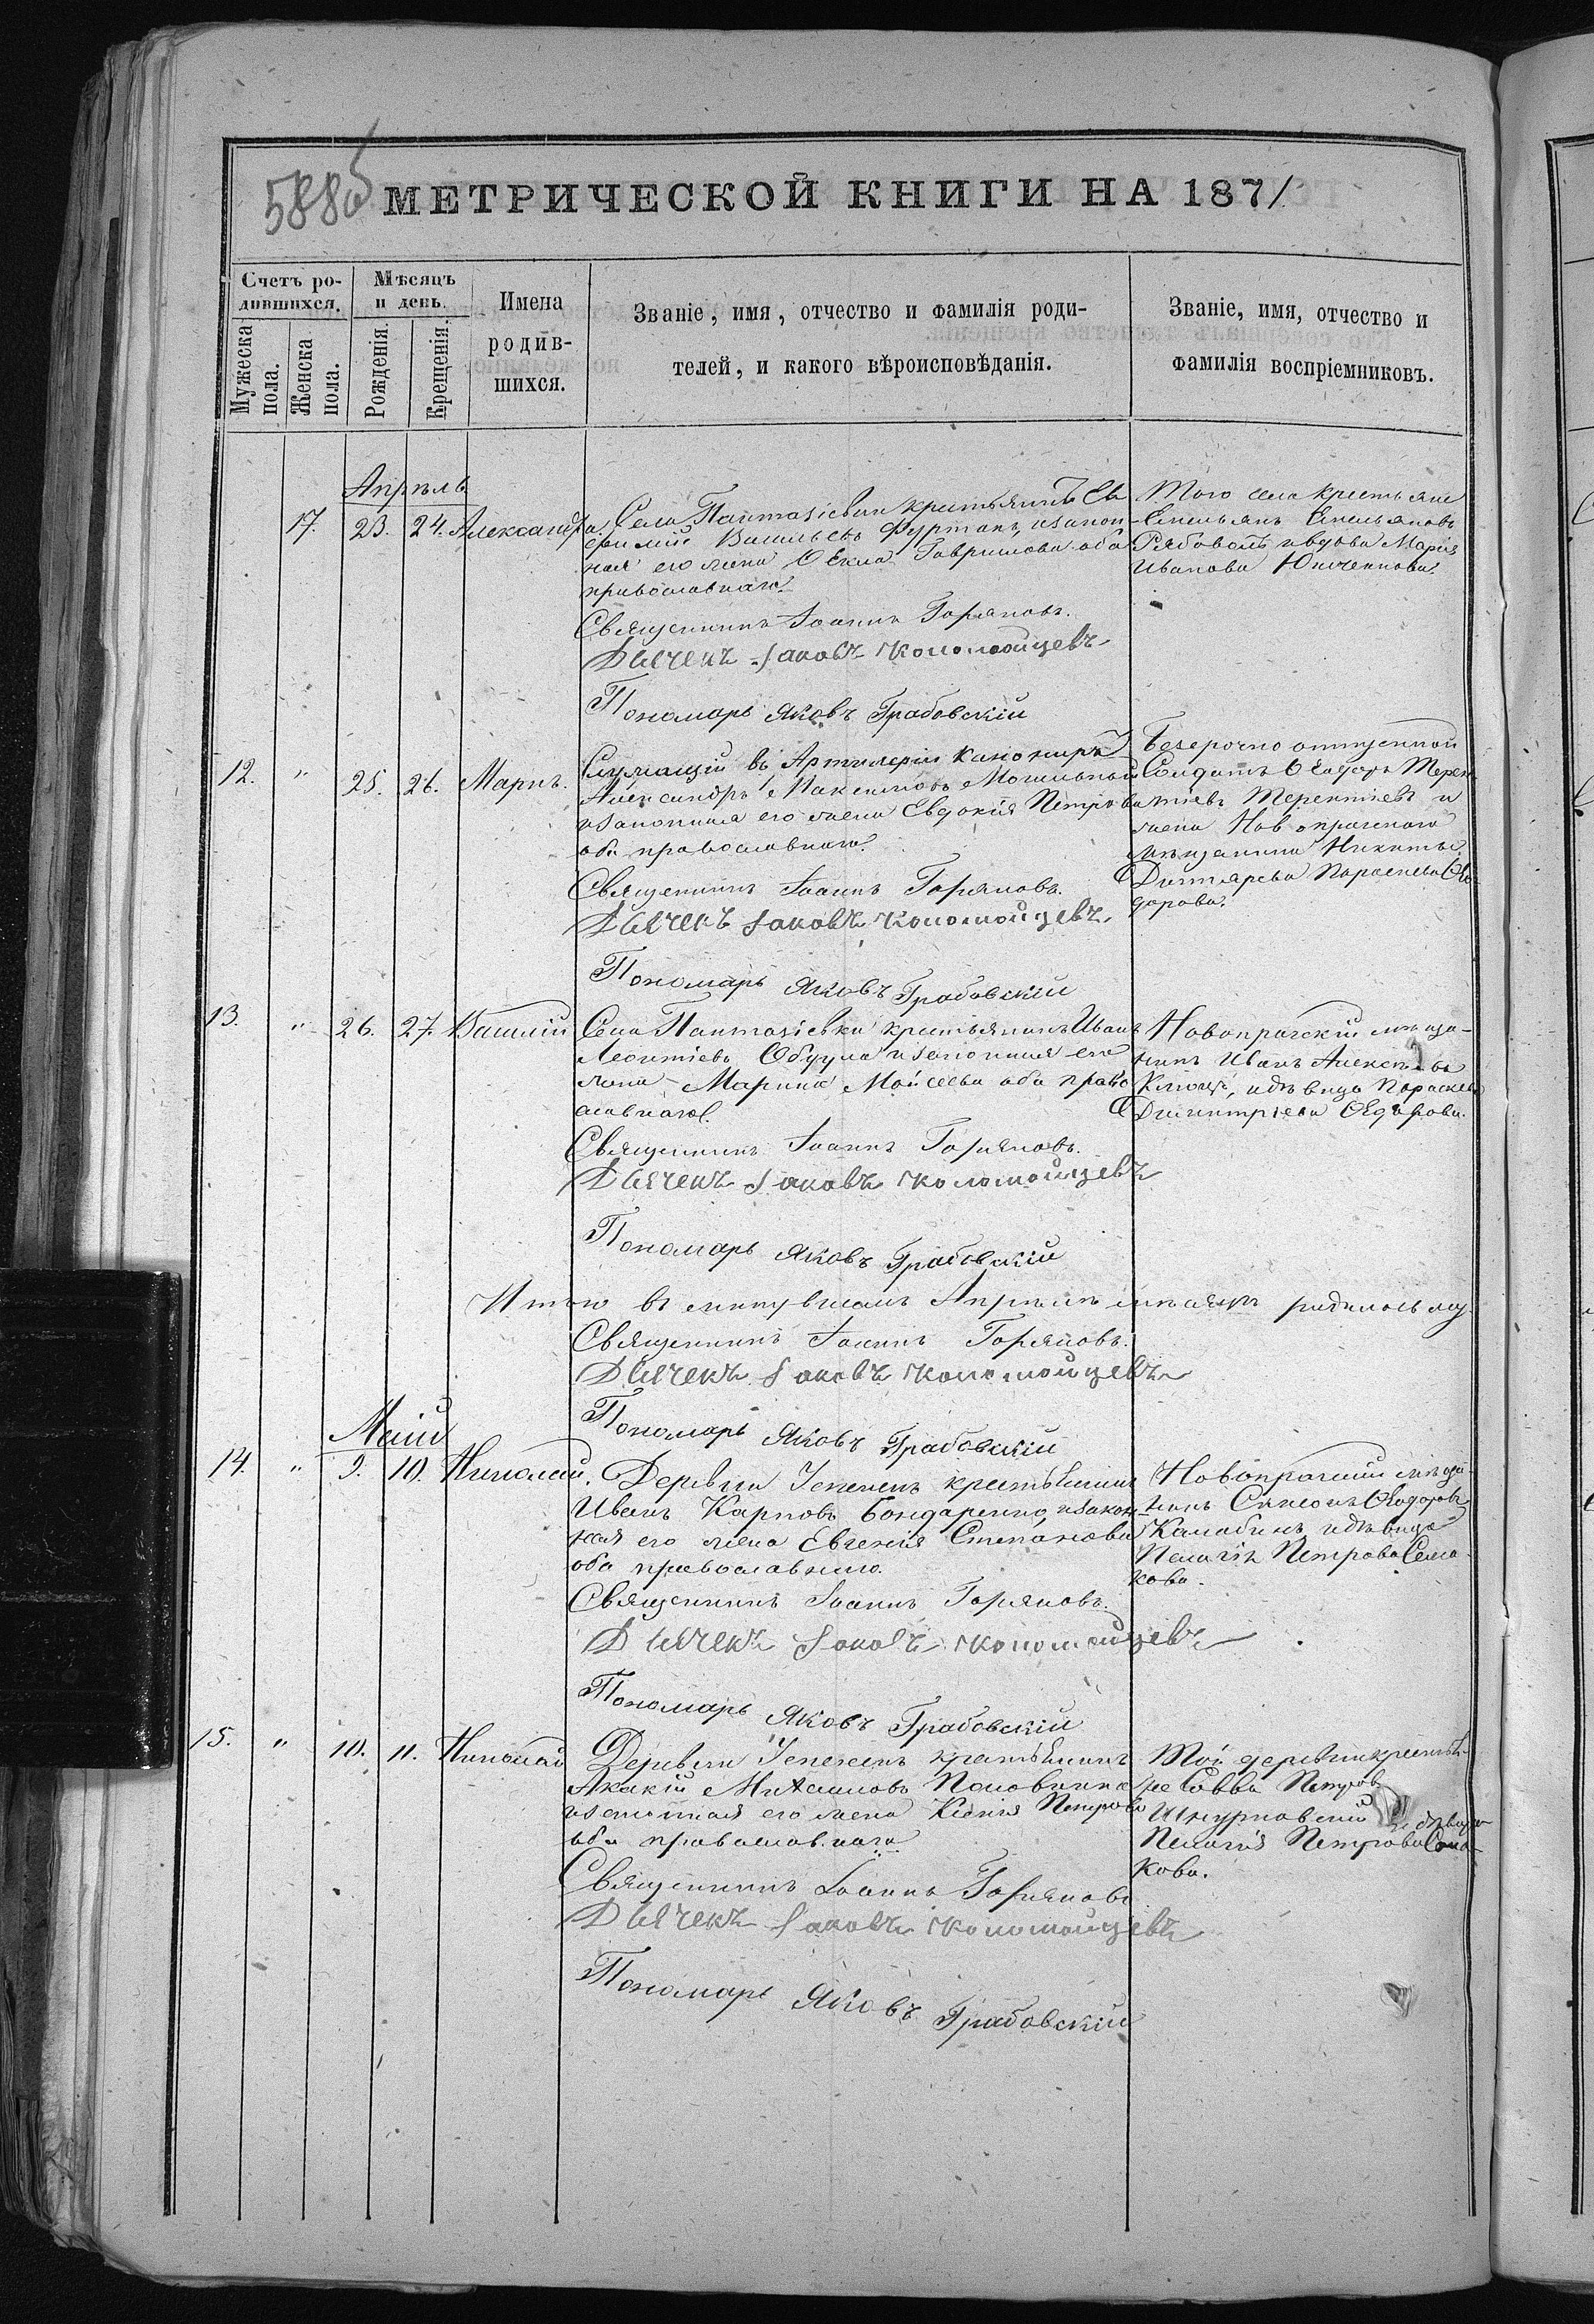 588об
МЕТРИЧЕСКОЙ КНИГИ НА 1871
Счетъ ро-
дившихся.
Мѣсяцъ
и день.
Имена
родив-
шихся.
Званіе, имя, отчество и фамилія роди-
телей, и какого вѣроисповѣданія.
Званіе, имя, отчество и
фамилія воспріемниковъ.
Мужеска
пола.
Женска
пола.
Рожденія.
Крещенія.
Апрѣль
17. 23. 24. Александра.
Села Пантазіевки крестьянинъ Ев
фимій Васильевъ Фурманъ, изакон
ная его жена Ѳекла Гаврилова оба
православнаго.
Священникъ Іоаннъ Горяновъ.
Дьячекъ Іаковъ Коломойцевъ
Пономарь Яковъ Грабовскій
Того села крестьяне
Емельянъ Емельяновъ
Рябоволъ, ивдова Марія
Иванова Юнченкова.
12. " 25. 26. Маркъ.
Служащій въ Артилеріи Канониръ
Александръ Максимовъ Могильный
изаконная его жена Евдокія Петрова
оба православнаго.
Священникъ Іоаннъ Горяновъ.
Дьячекъ Іаковъ Коломойцевъ.
Пономарь Яковъ Грабовскій
Безсрочно отпускной
Солдатъ Ѳеодоръ Терен
тіевъ Терентіевъ и
жена Новопражскаго
мѣщанина Никиты
Дихтярева Параскева Ѳео
дорова.
13. " 26. 27. Василій
Села Пантазіевки крестьянинъ Иванъ
Леонтіевъ Обдула изаконная его
жена Марина Моисеева оба право
славнаго.
Священникъ Іоаннъ Горяновъ.
Дьячекъ Іаковъ Коломойцевъ
Пономарь Яковъ Грабовскій
Новопражскій мѣща-
нинъ Иванъ Алексѣевъ
идѣвица Параскева
Димитріева Ѳедорова.
Итого въ минувшемъ Апрѣлѣ мѣсяцѣ родилось му
Священникъ Іоаннъ Горяновъ.
Дьячекъ Іаковъ Коломойцевъ
Пономарь Яковъ Грабовскій
Маій
14. " 9. 10. Николай.
Деревни крестьянинъ
Иванъ Карповъ Бондаренко, изакон-
ная его жена Евгенія Степанова
оба православнаго.
Священникъ Іоаннъ Горяновъ.
Дьячекъ Іаковъ Коломойцевъ
Пономарь Яковъ Грабовскій
Новопражскій мѣща-
нинъ Симеонъ Ѳеодоровъ
Калабинъ идѣвица
Пелагія Петрова Сема-
кова.
15. " 10. 11. Николай
Деревни крестьянинъ
Акакій Михайловъ Половинка
изаконная его жена Ксенія Петрова
оба православнаго
Священникъ Іоаннъ Горяновъ
Дьячекъ Іаковъ Коломойцевъ
Пономарь Яковъ Грабовскій
Той деревни крестья-
не Савва Петровъ
идѣвица
Пелагія Петрова Сема-
кова.